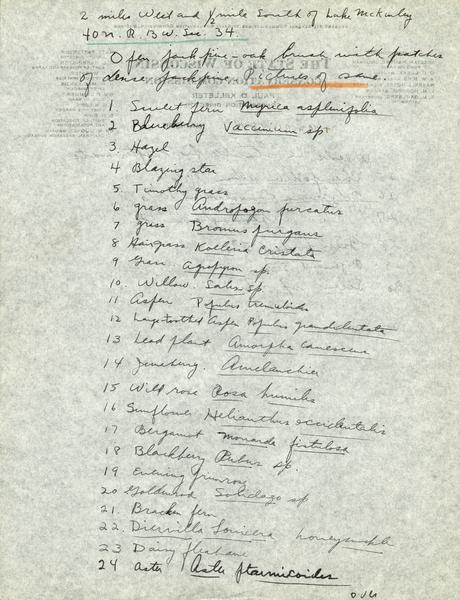 2 miles West and ½ mile South of Lake McKinley
40 N. R. 13 W. Sec. 34.
Open jack pine-oak brush with patches
of dense jack pine. Pictures of same.
1 Sweet fern Myrica asplenifolia
2 Blueberry Vaccinium sp
3. Hazel
4 Blazing star
5. Timothy grass
6 grass Andropogon furcatus
7 grass Bromus purgans
8 Hairgrass Koeleria Cristata
9 Grass. Agropyron sp.
10. Willow. Salix sp
11 Aspen Populus tremuloides
12 Large-toothed Aspen Populus grandidentata
13 Lead plant Amorpha canescens
14 Juneberry. Amelanchier
15 Wild rose Rosa humilis
16 Sunflower Helianthus occidentalis
17 Bergamot Monarda fistulosa
18 Blackberry Rubus sp.
19 Evening primrose
20 Goldenrod Solidago sp
21. Bracken fern
22. Diervilla Lonicera honeysuckle
23 Daisy fleabane
24 Aster Aster ptarmicoides
over